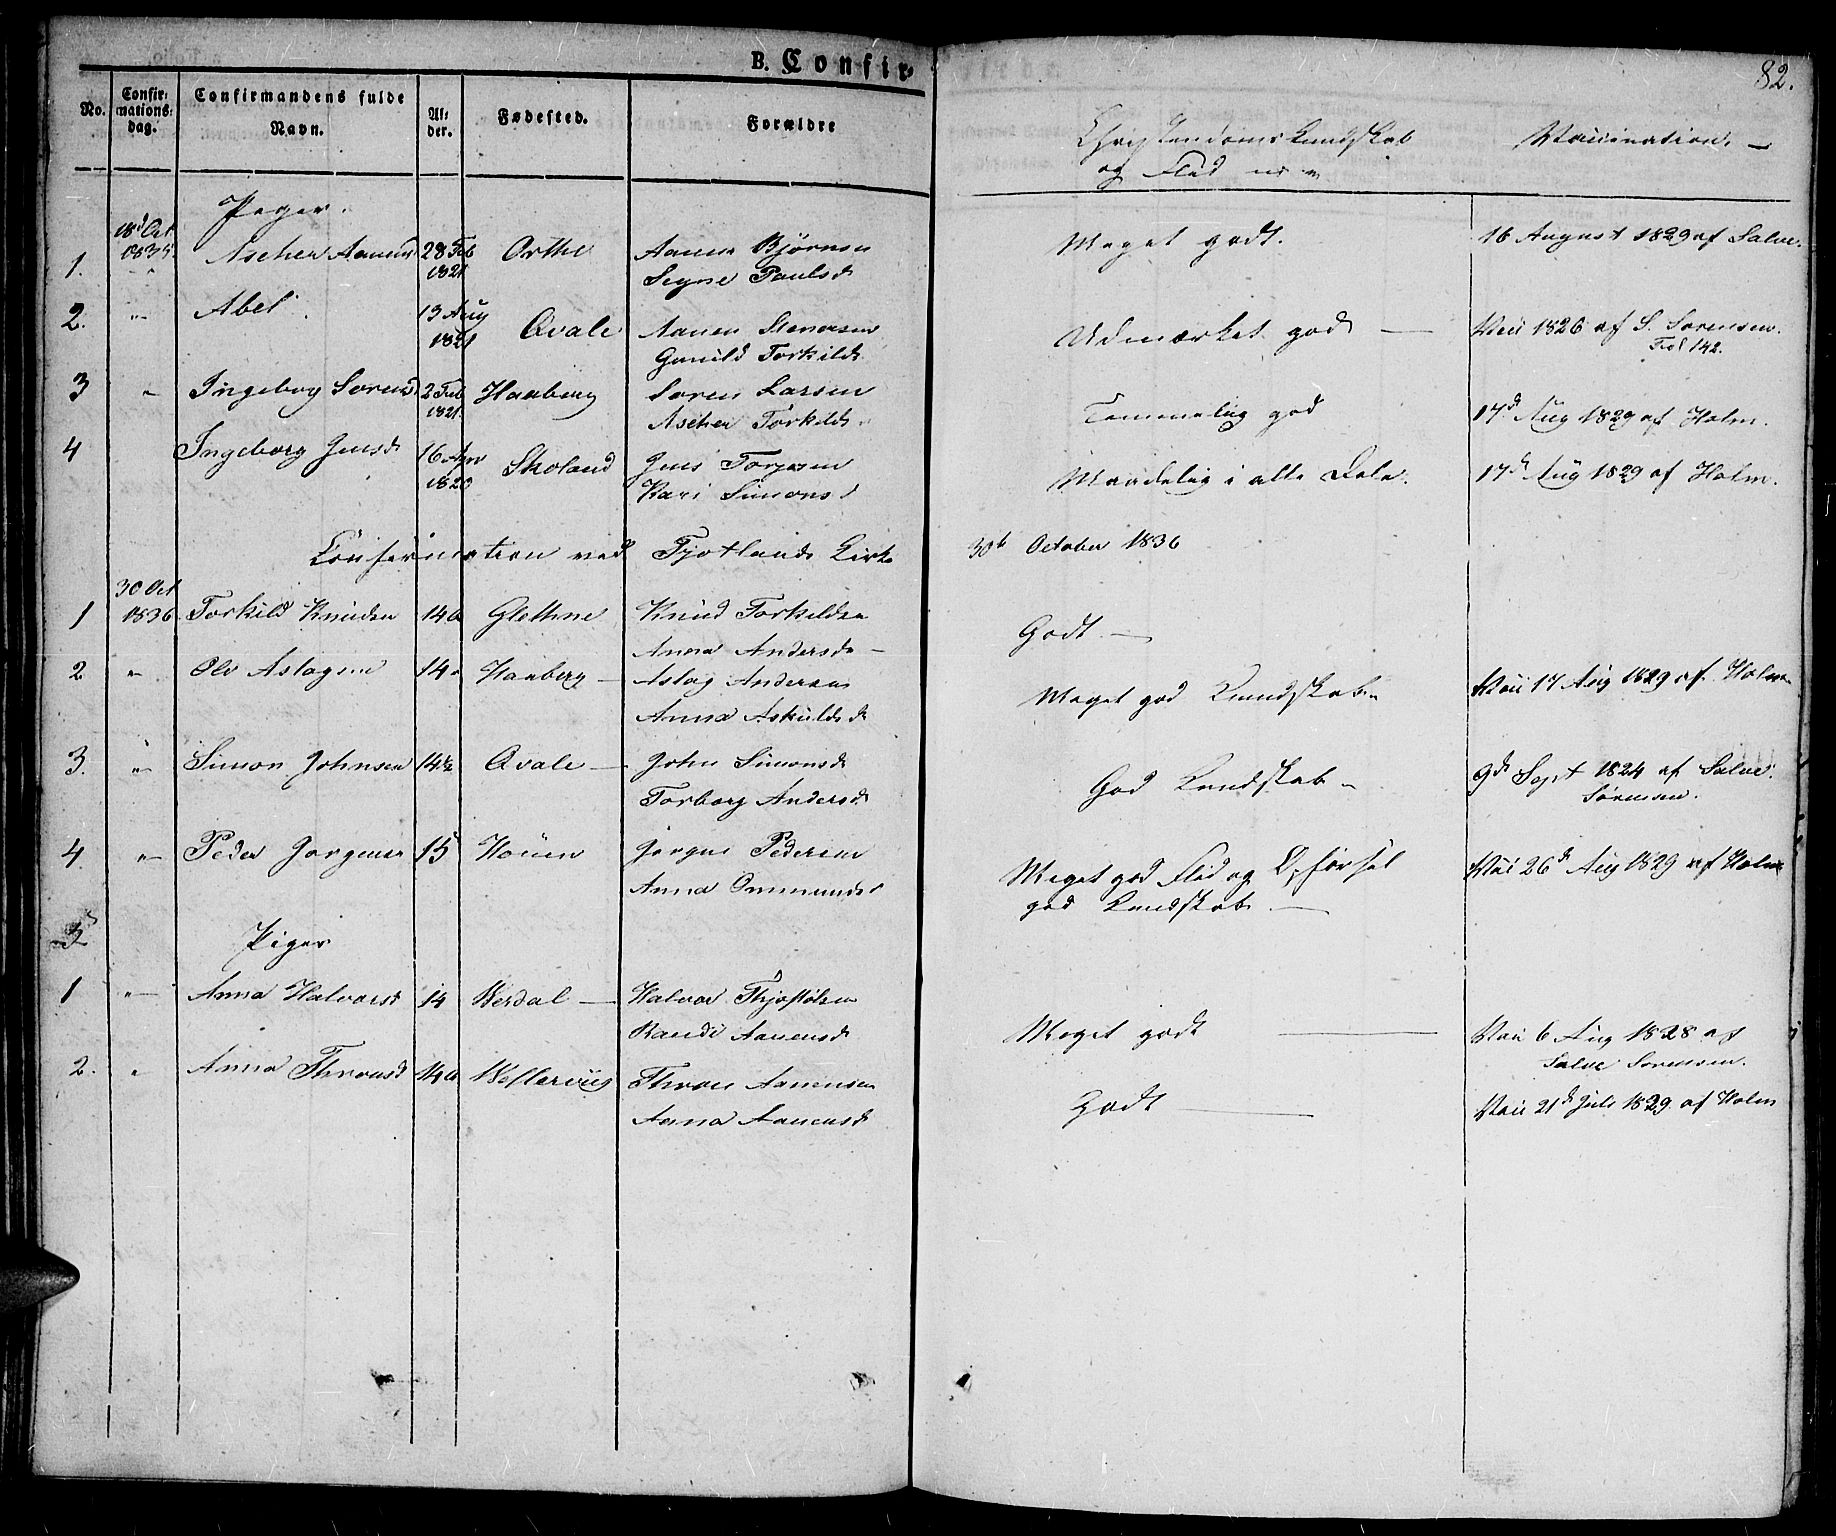 B. Confir-
82.
No. Confir-mations-dag. Confirmandens fulde Navn. Al-der. Fødested. Forældre
Christendoms Kundskab og Flid Vaccination.
Piger.
1. 18d Oct 1835 Ascher Aanens 28 Feb 1821 Orthe Aanen Bjørnsen Meget godt. 16 August 1829 af Salve.
Segne Paulsd
2. " Abel 13 Aug 1821 Qvale Aanen Stenersen Udmærket god Vaci 1826 af S. Sørensen.
Gunild Torkilds Fol 142.
3 " Ingeborg Sørens 2 Feb 1821. Haaberg Søren Larsen Temmelig god 17d Aug 1829 af Holm.
Ascher Torkilds
4 Ingeborg Jensd 16 Apr 1820 Skoland Jens Torgersen Maadelig i alle Dele. 17d Aug 1829 af Holm.
Kari Simonsd
Confirmation ved Fjotlands Kirke 30te October 1836
1 30 Oct 1836 Torkild Knudsen 14 a Glethne Knud Torkildsen Godt
Anna Andersd
2 " Ole Aslagsen 14 Haaberg Aslag Andersen Meget god Kundskab Vaci 17 Aug 1829 af Holm
Anna Askildsd
3. " Simon Johnsen 14 1/2 Qvale John Simonsd God Kundskab 9d Sept 1824 af Salve
Torborg Andersd Sørensen.
4 " Peder Jørgensen 15 Houen Jørgen Pedersen Meget god Flid og Opførsel Vaci 26d Aug 1829 af Holm
Anna Ommunds god Kundskab
Piger
1 " Anna Halvorsd 14 Verdal Halvor Thjostølsen Meget godt Vaci 6 Aug 1828 af
Randi Aanensd Salve Sørensen.
2. " Anna Throndsd 14 a Thron Aanensen Godt Vaci 21d Juli 1829 af Holm
Anna Aanensd